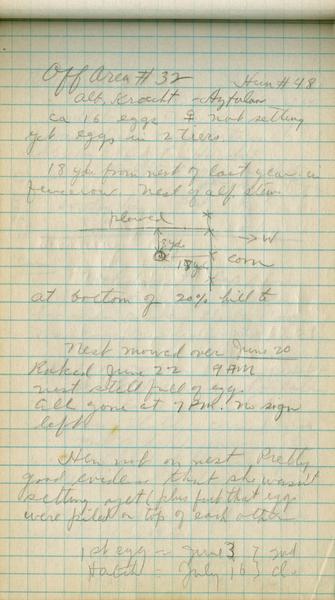 Off Area #32 Hen #48
Alb. Kracht - Aztalan
ca 16 eggs ♀ not setting
yet eggs in 2 tiers
18 yds from nest of last year in
fencerow. Nest of alf. stems
plowed
3 yds → W
18 yds corn
at bottom of 20% hill to
Nest mowed over June 20
Raked June 22 9 AM
nest still full of eggs
all gone at 7 PM. no sign
left
Hen not on nest Pretty
good evidence that she wasn't
setting yet (plus fact that eggs
were piled on top of each other
1st egg = June 3 } 2nd
Hatch = July 16 }